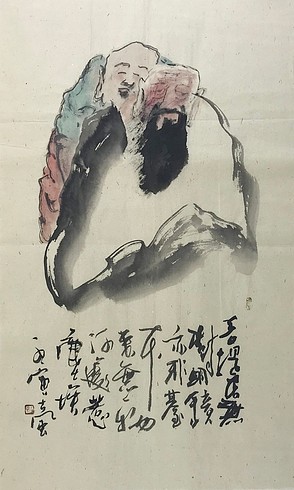 菩提本無
樹明鏡
亦非臺
本
無一物
何處惹
塵埃